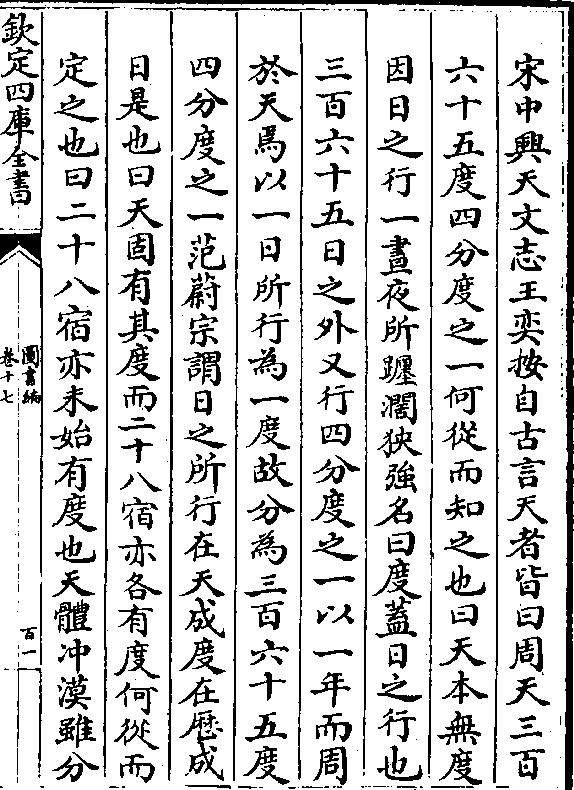 宋中興天文志王奕按自古言天者皆曰周天三百
六十五度四分度之一何從而知之也曰天本無度
因日之行一晝夜所躔濶狹強名曰度蓋日之行也
三百六十五日之外又行四分度之一以一年而周
於天焉以一日所行為一度故分為三百六十五度
四分度之一范蔚宗謂日之所行在天成度在厯成
日是也曰天固有其度而二十八宿亦各有度何從而
定之也曰二十八宿亦未始有度也天體冲漠雖分
欽定四庫全書
圖書編
卷十七
百一